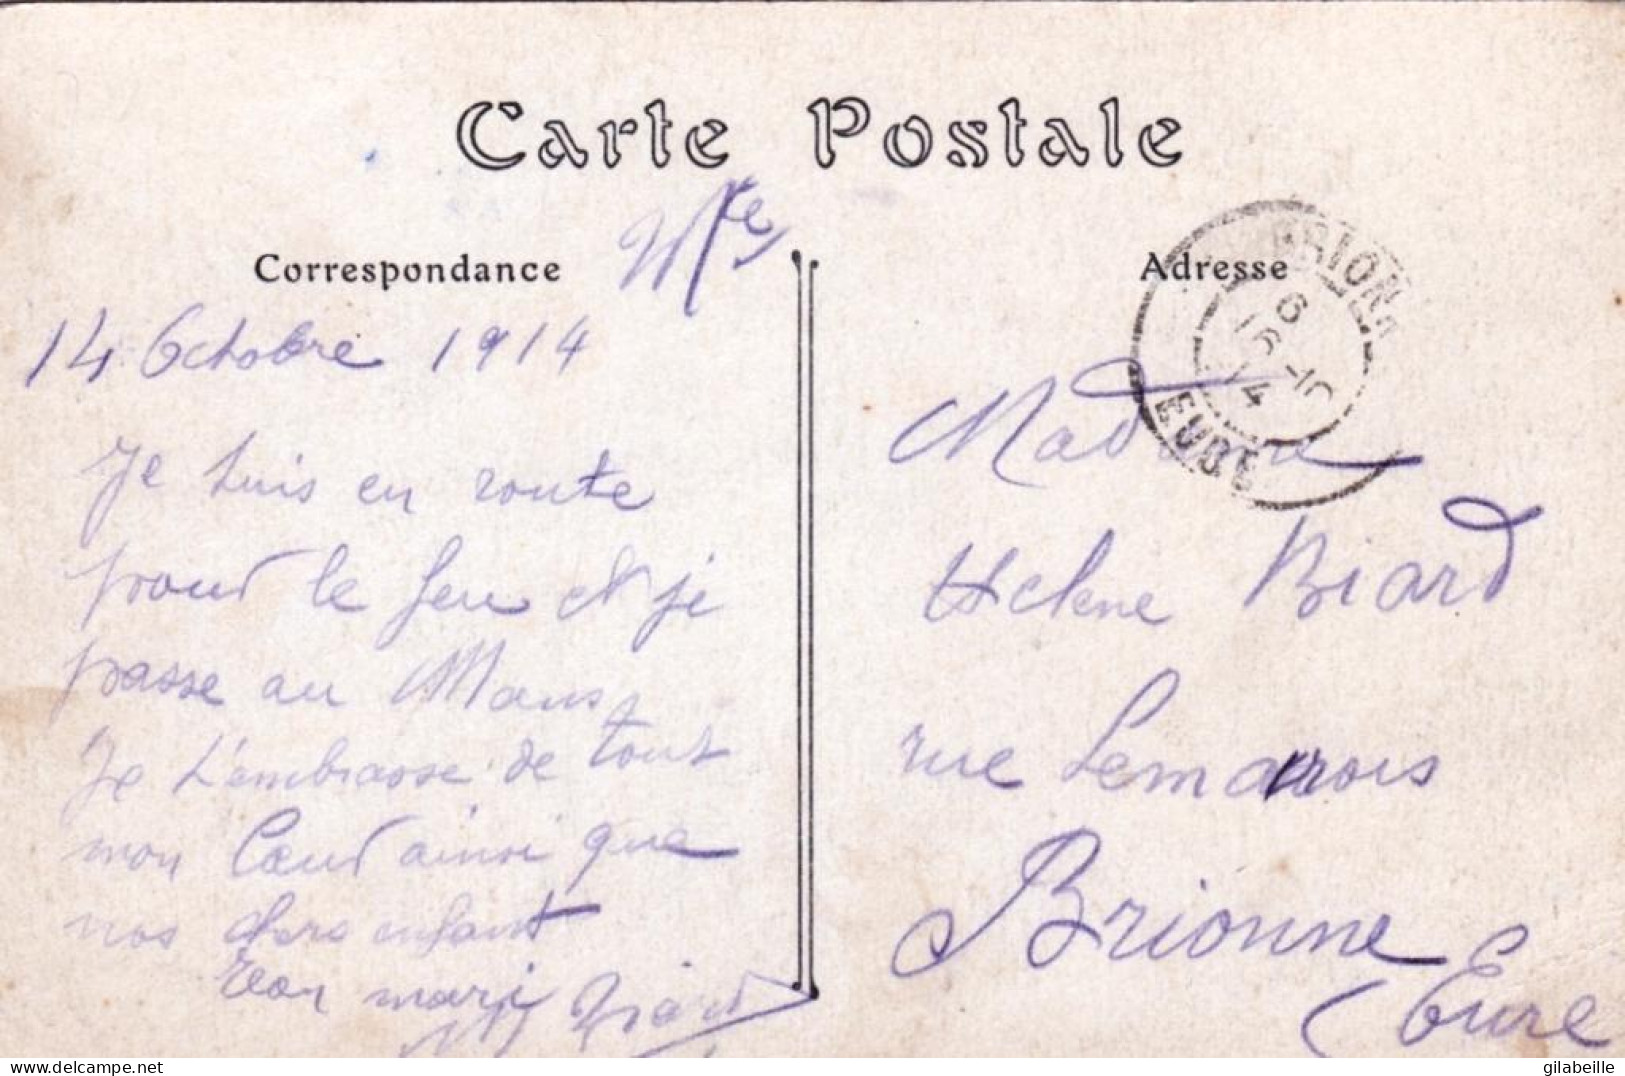 Carte Postale
Correspondance
14 Octobre 1914
Je suis en route
pour le feu et je
passe au Mans
Je t'embrasse de tout
mon Cœur ainsi que
nos chers enfant
ton mari
Biard
Adresse
BRIONNE
6
16-10
14
EURE
Madame
Helene Biard
rue Lemarrois
Brionne
Eure
delcampe.net
gilabeille